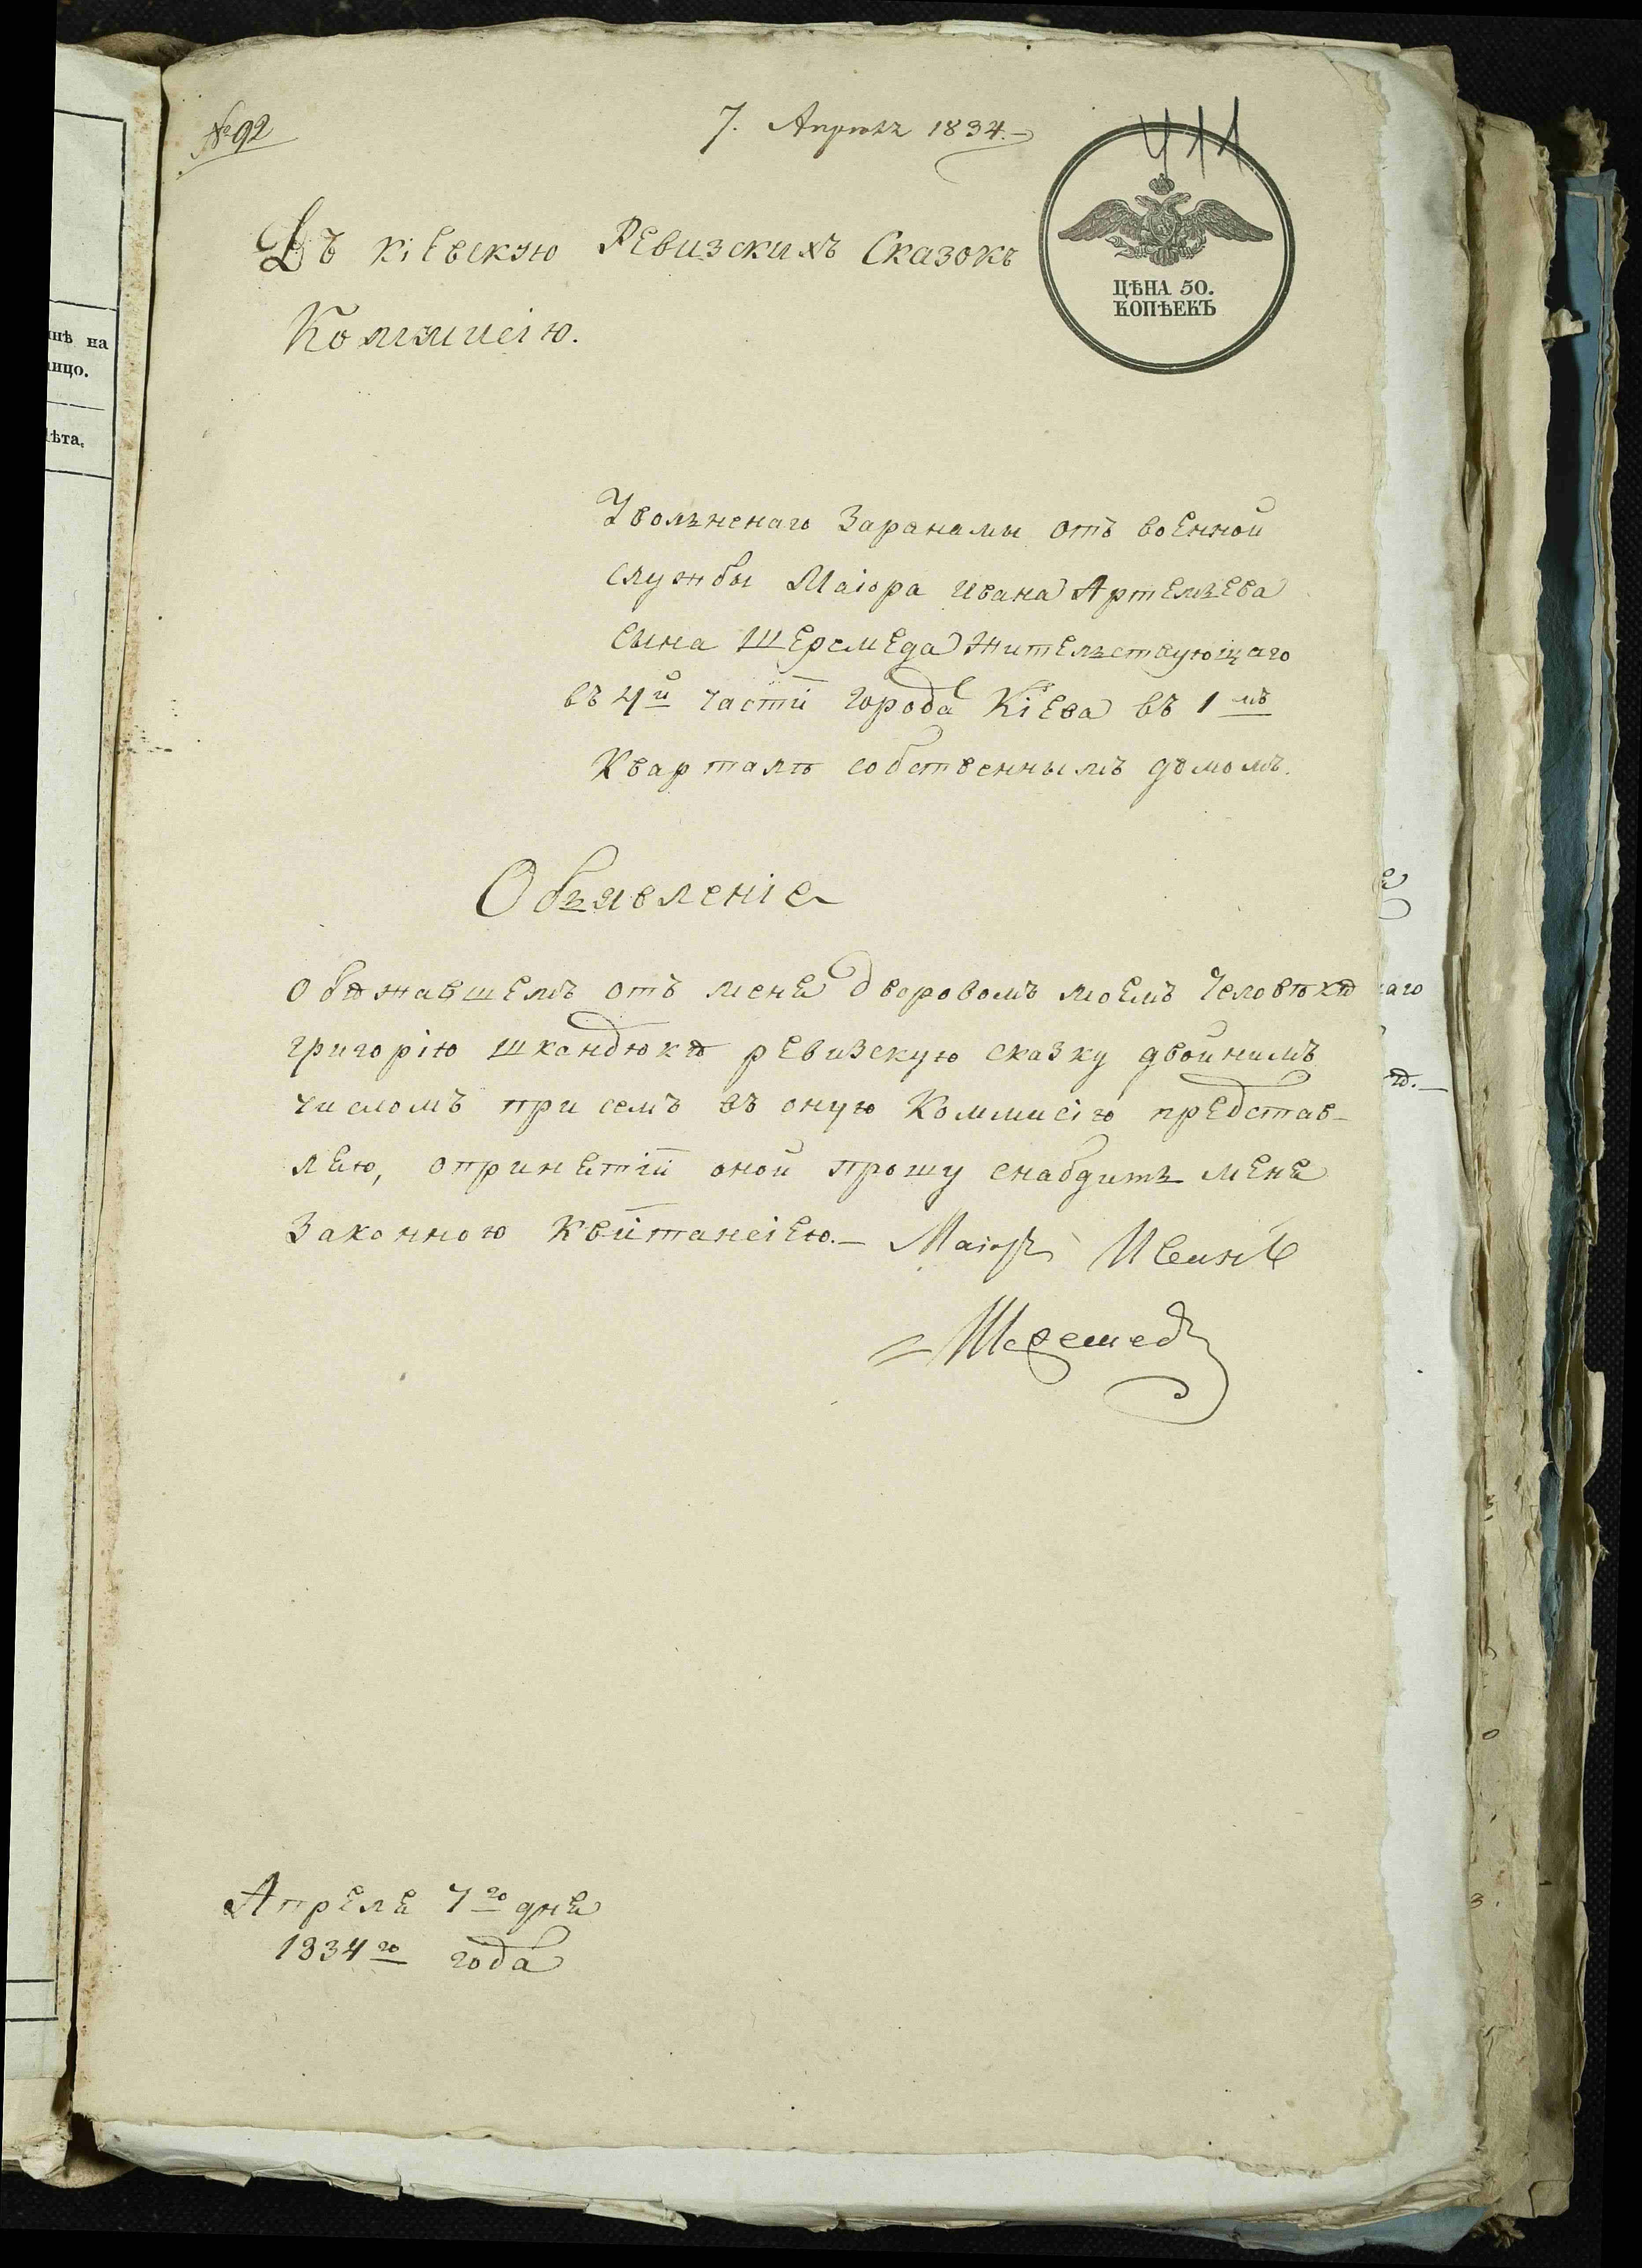 № 92
7. Апрѣль 1834.
411
Въ кіевскую Ревизскихъ Сказокъ
Коммисію.
ЦѢНА 50.
КОПѢЕКЪ
инѣ на
ицо.
лѣта.
Увольненаго Заранамы отъ военной
службы Маіора ивана Артемьева
сына Шеремеда Жительствующаго
въ 4й частй города Кіева въ 1мъ
Кварталѣ собственнымъ домомъ.
Обьявленіе
обѣжавшемъ отъ меня дворовомъ моемъ Человѣкѣ
григорію шкандюкѣ ревизскую сказку двойнимъ
числомъ при семъ въ оную Коммисію представ-
ляю, опринятій оной прошу снабдить меня
Законною Квитансіею.- Маіоръ Иванъ
Шеремедъ
аго
Апреля 7го дня
1834го года